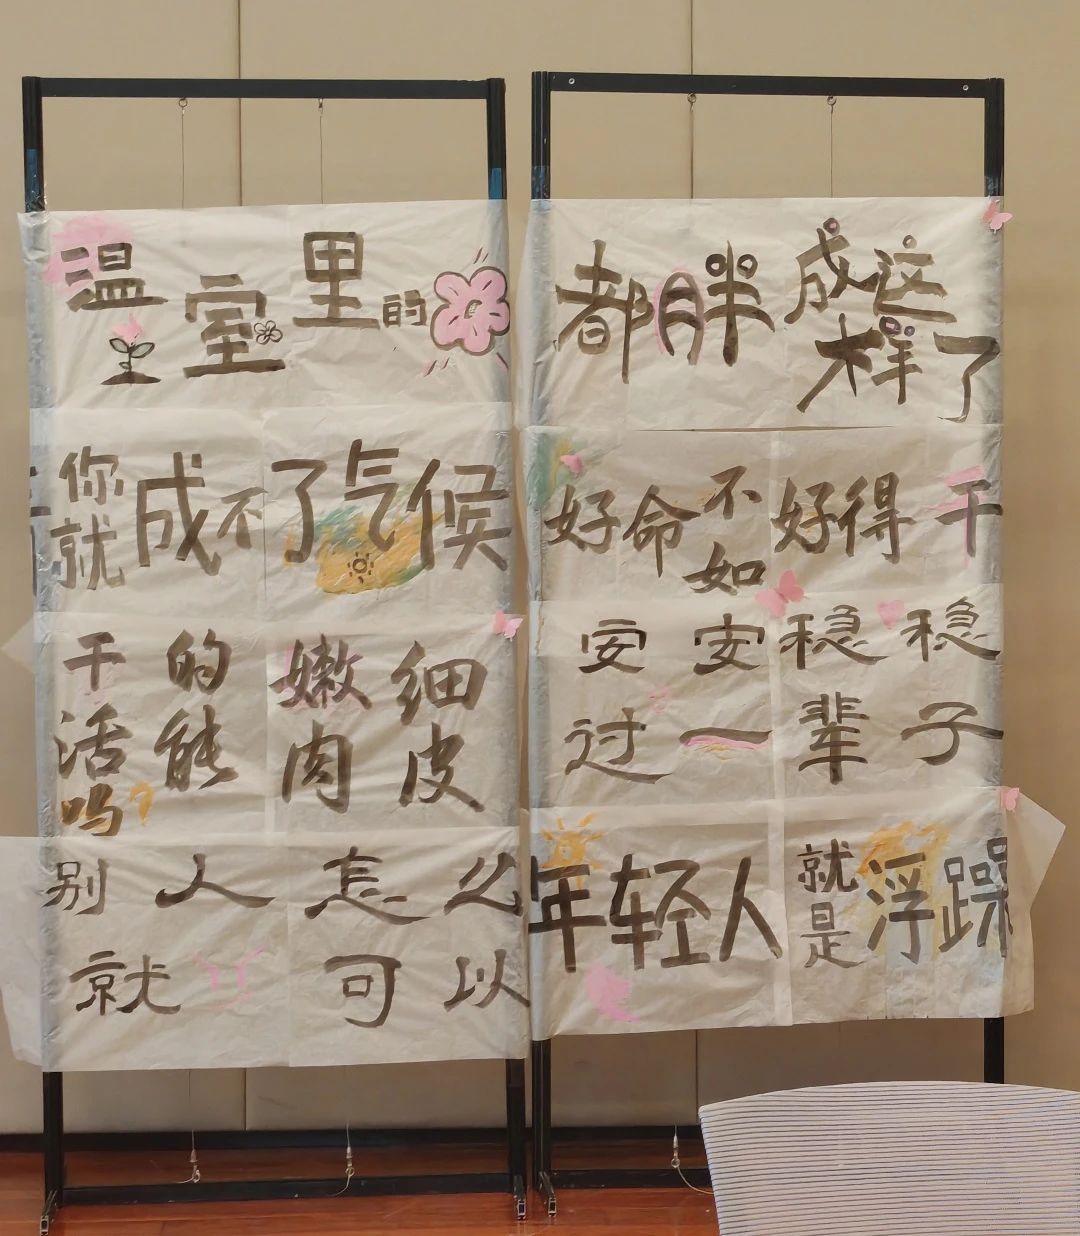 温室里的
你就成不了气候
细皮嫩肉的能干活吗?
别人怎么
就可以
都胖成这样了
干得好不如命好
安安稳稳
过一辈子
年轻人就是浮躁